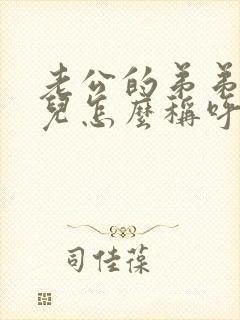 老公的弟弟
兒怎麼稱呼
司佳葆